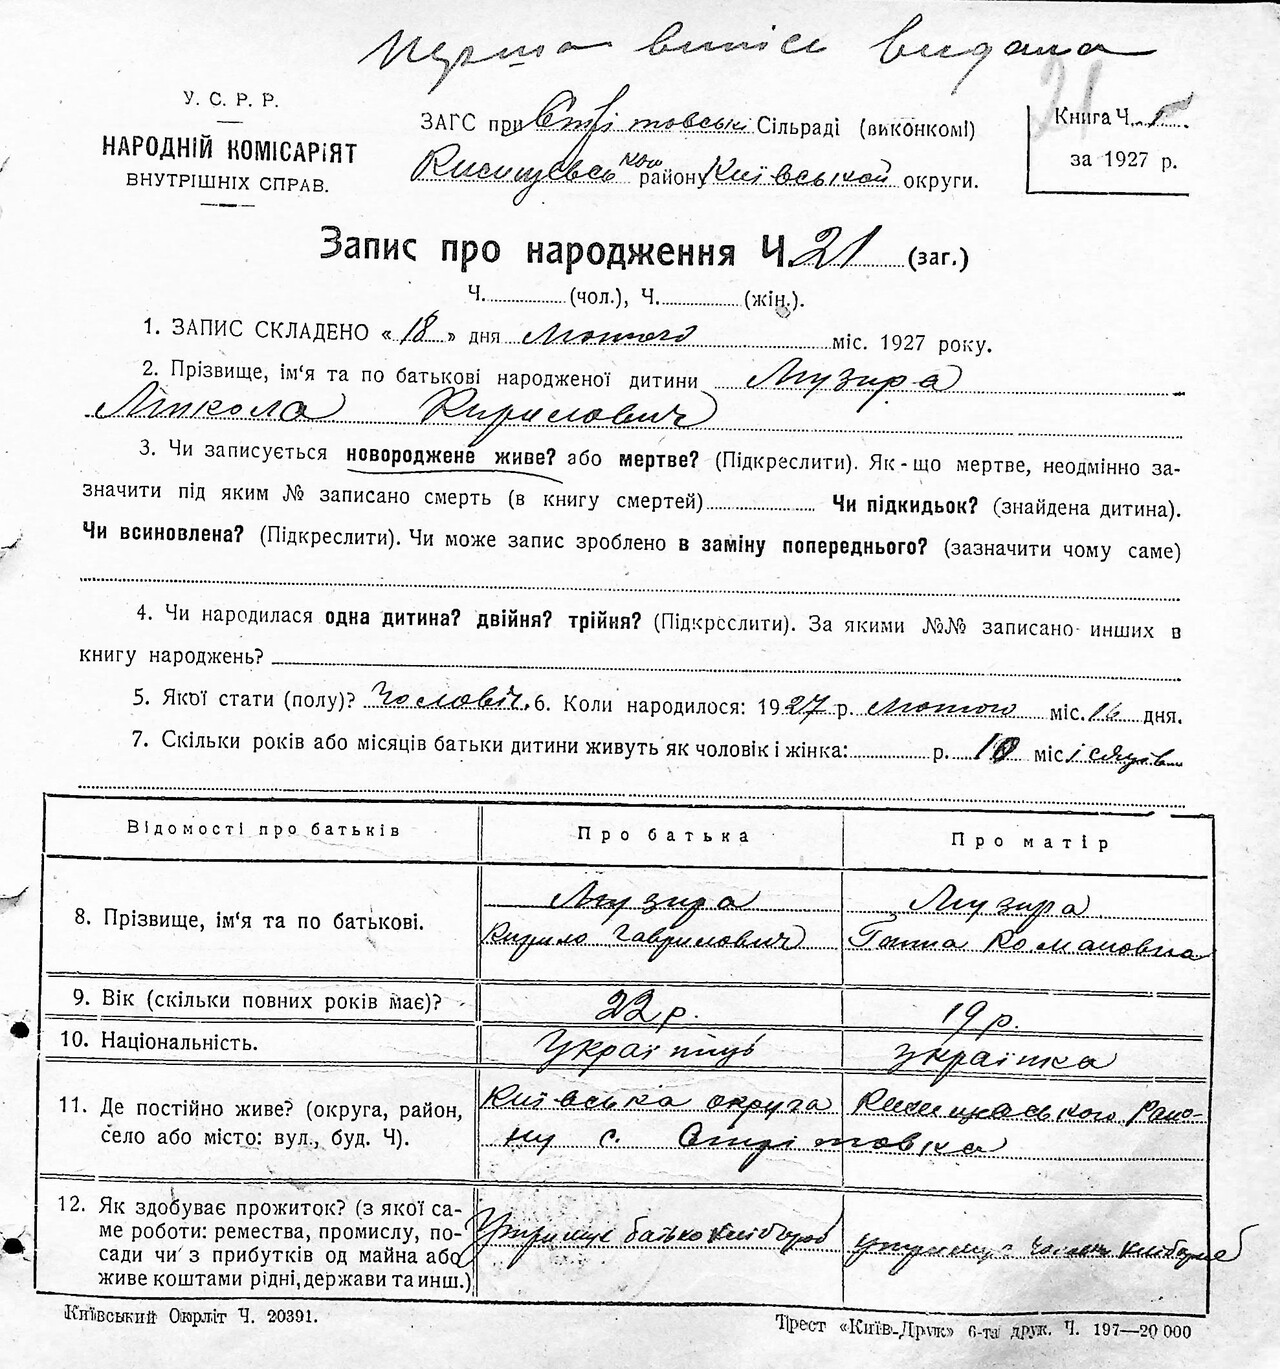 Перша випись видана
21
У. С. Р. Р.
НАРОДНІЙ КОМІСАРІЯТ
ВНУТРІШНІХ СПРАВ.
ЗАГС при Сільраді (виконкомі)
району Київської округи.
Книга Ч.
за 1927 р.
Запис про народження Ч. 21 (заг.)
Ч. (чол.), Ч. (жін.).
1. ЗАПИС СКЛАДЕНО « 18 » дня Лютого міс. 1927 року.
2. Прізвище, ім'я та по батькові народженої дитини Музира
Микола Кирилович
3. Чи записується новороджене живе? або мертве? (Підкреслити). Як-що мертве, неодмінно за-
значити під яким № записано смерть (в книгу смертей) Чи підкидьок? (знайдена дитина).
Чи всиновлена? (Підкреслити). Чи може запис зроблено в заміну попереднього? (зазначити чому саме)
4. Чи народилася одна дитина? двійня? трійня? (Підкреслити). За якими №№ записано инших в
книгу народжень?
5. Якої стати (полу)? Чоловіч. 6. Коли народилося: 1927 р. Лютого міс. 16 дня.
7. Скільки років або місяців батьки дитини живуть як чоловік і жінка: р. 10 місісяців
Відомості про батьків Про батька Про матір
8. Прізвище, ім'я та по батькові. Музира Музира
Кирило Гаврилович Ганна Романовна
9. Вік (скільки повних років має)? 22 р. 19 р.
10. Національність. Українець Українка
11. Де постійно живе? (округа, район, Київська округа
село або місто: вул., буд. Ч). ну с.
12. Як здобуває прожиток? (з якої са-
ме роботи: ремества, промислу, по-
сади чи з прибутків од майна або
живе коштами рідні, держави та инш.)
батько хлібороб
Київський Окрліт Ч. 20391.
Трест «Київ-Друк» 6-та друк. Ч. 197—20 000